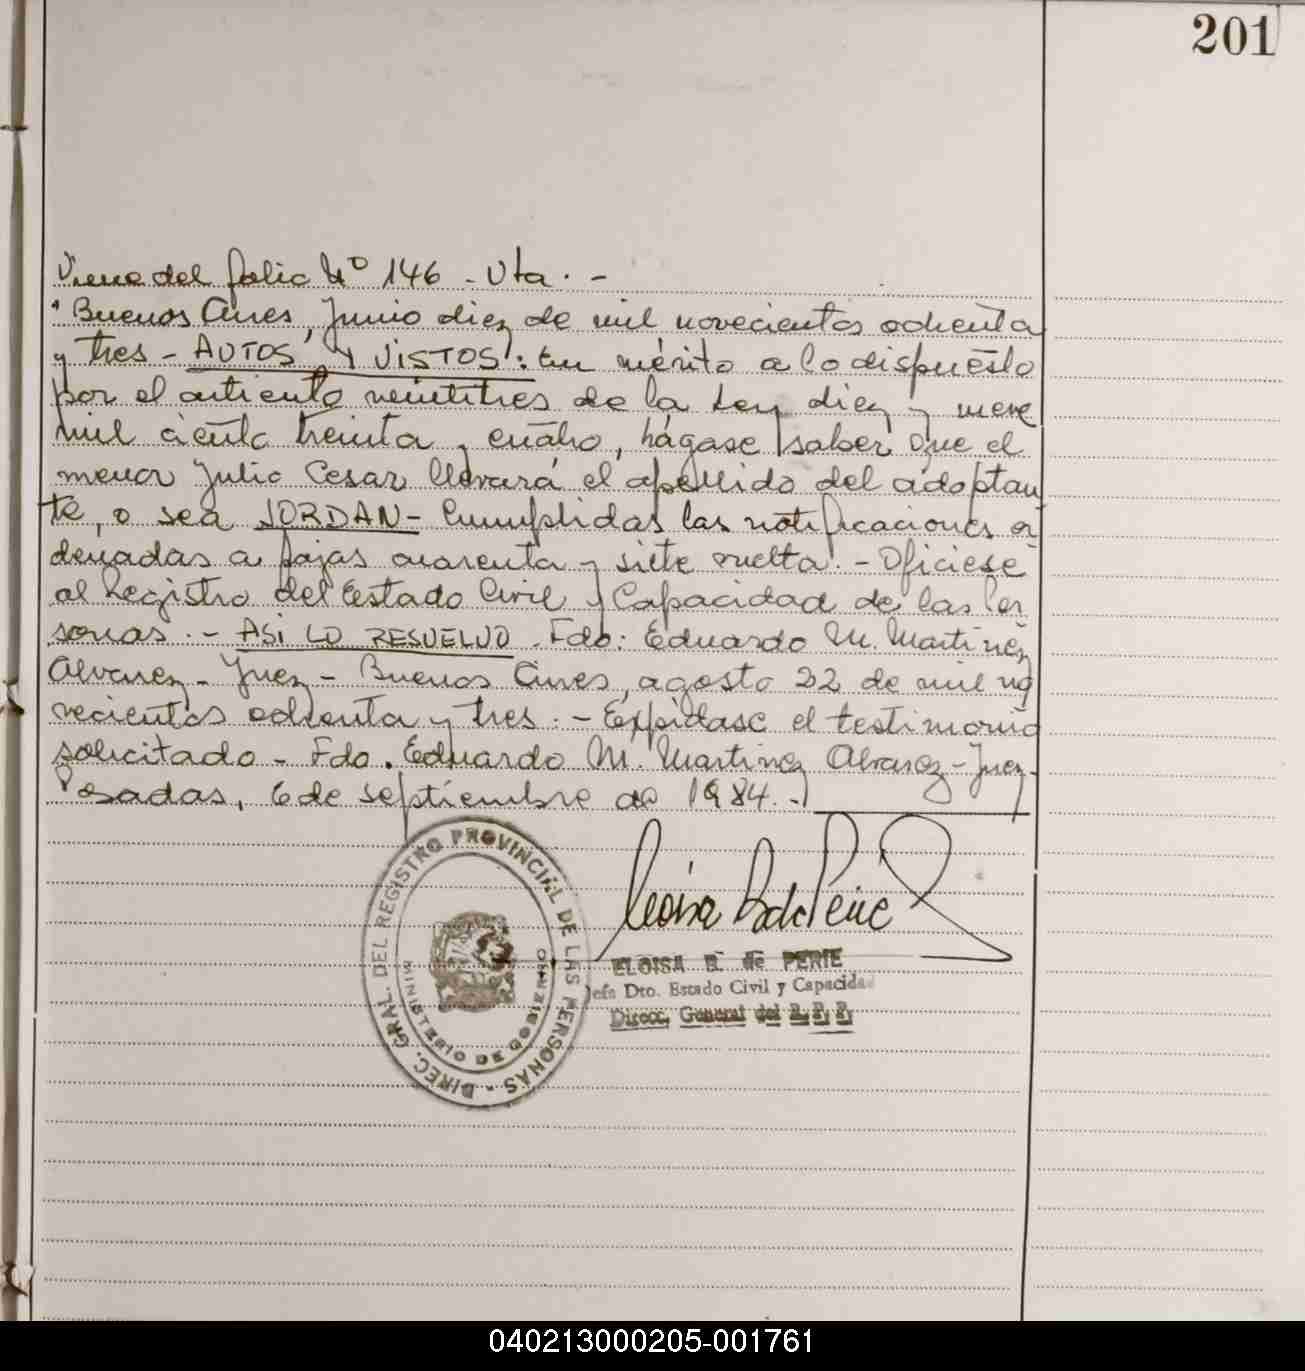 201
Viene del folio Nº 146 - Vta. -
"Buenos Aires, Junio diez de mil novecientos ochenta
y tres - AUTOS Y VISTOS: En mérito a lo dispuesto
por el artículo veintitres de la Ley diez y nueve
mil ciento treinta y cuatro, hágase saber que el
menor Julio Cesar llevará el apellido del adoptan
te, o sea JORDAN - Cumplidas las notificaciones or
denadas a fojas cuarenta y siete vuelta. - Ofíciese
al Registro del Estado Civil y Capacidad de las Per
sonas. - ASI LO RESUELVO. Fdo: Eduardo M. Martinez
Alvarez - Juez - Buenos Aires, agosto 22 de mil no
vecientos ochenta y tres. - Expídase el testimonio
solicitado - Fdo. Eduardo M. Martinez Alvarez - Juez -
Posadas, 6 de septiembre de 1984. -
DIREC. GRAL. DEL REGISTRO PROVINCIAL DE LAS PERSONAS -
MINISTERIO DE GOBIERNO
ELOISA B. de PERIE
Jefa Dto. Estado Civil y Capacidad
Direcc. General del R. P. P.
040213000205-001761